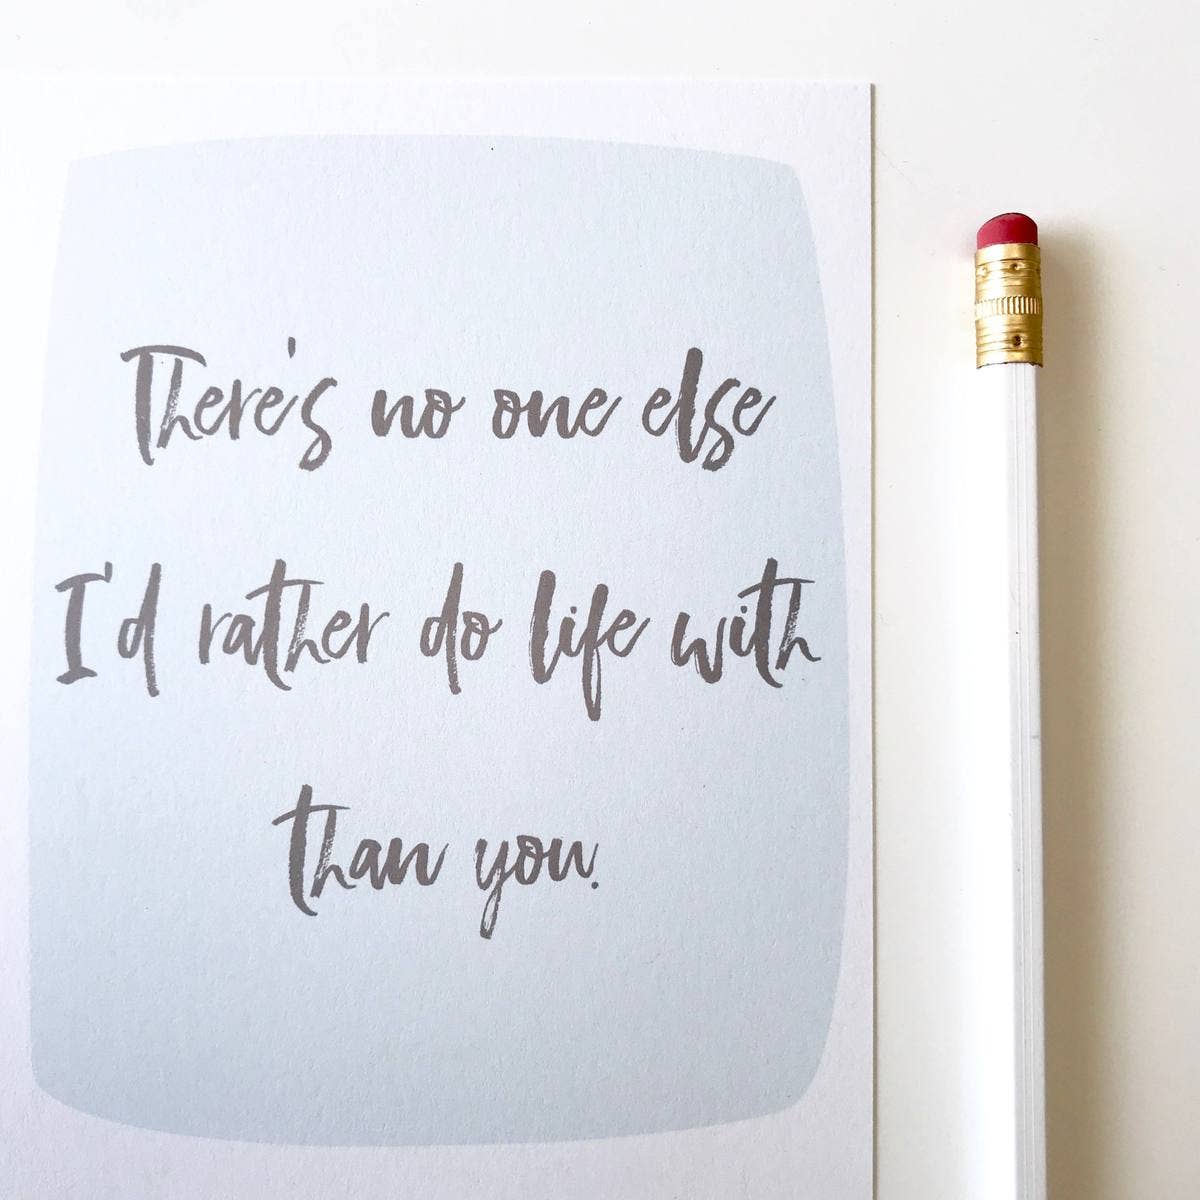 There's no one else
I'd rather do life with
than you.